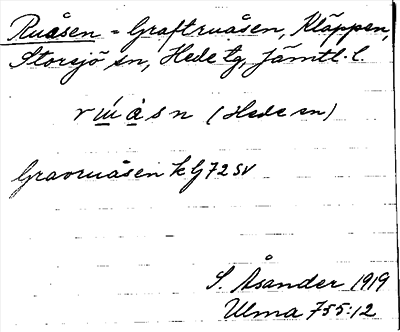 Ruåsen = Graftruåsen, Kläppen,
Storsjö sn, Hede tg, Jämtl. l.
r ɯ́ å̀ s n (Hede sn)
Gravruåsen k bl 72 SV
S. Åsander 1919
Ulma 755:12